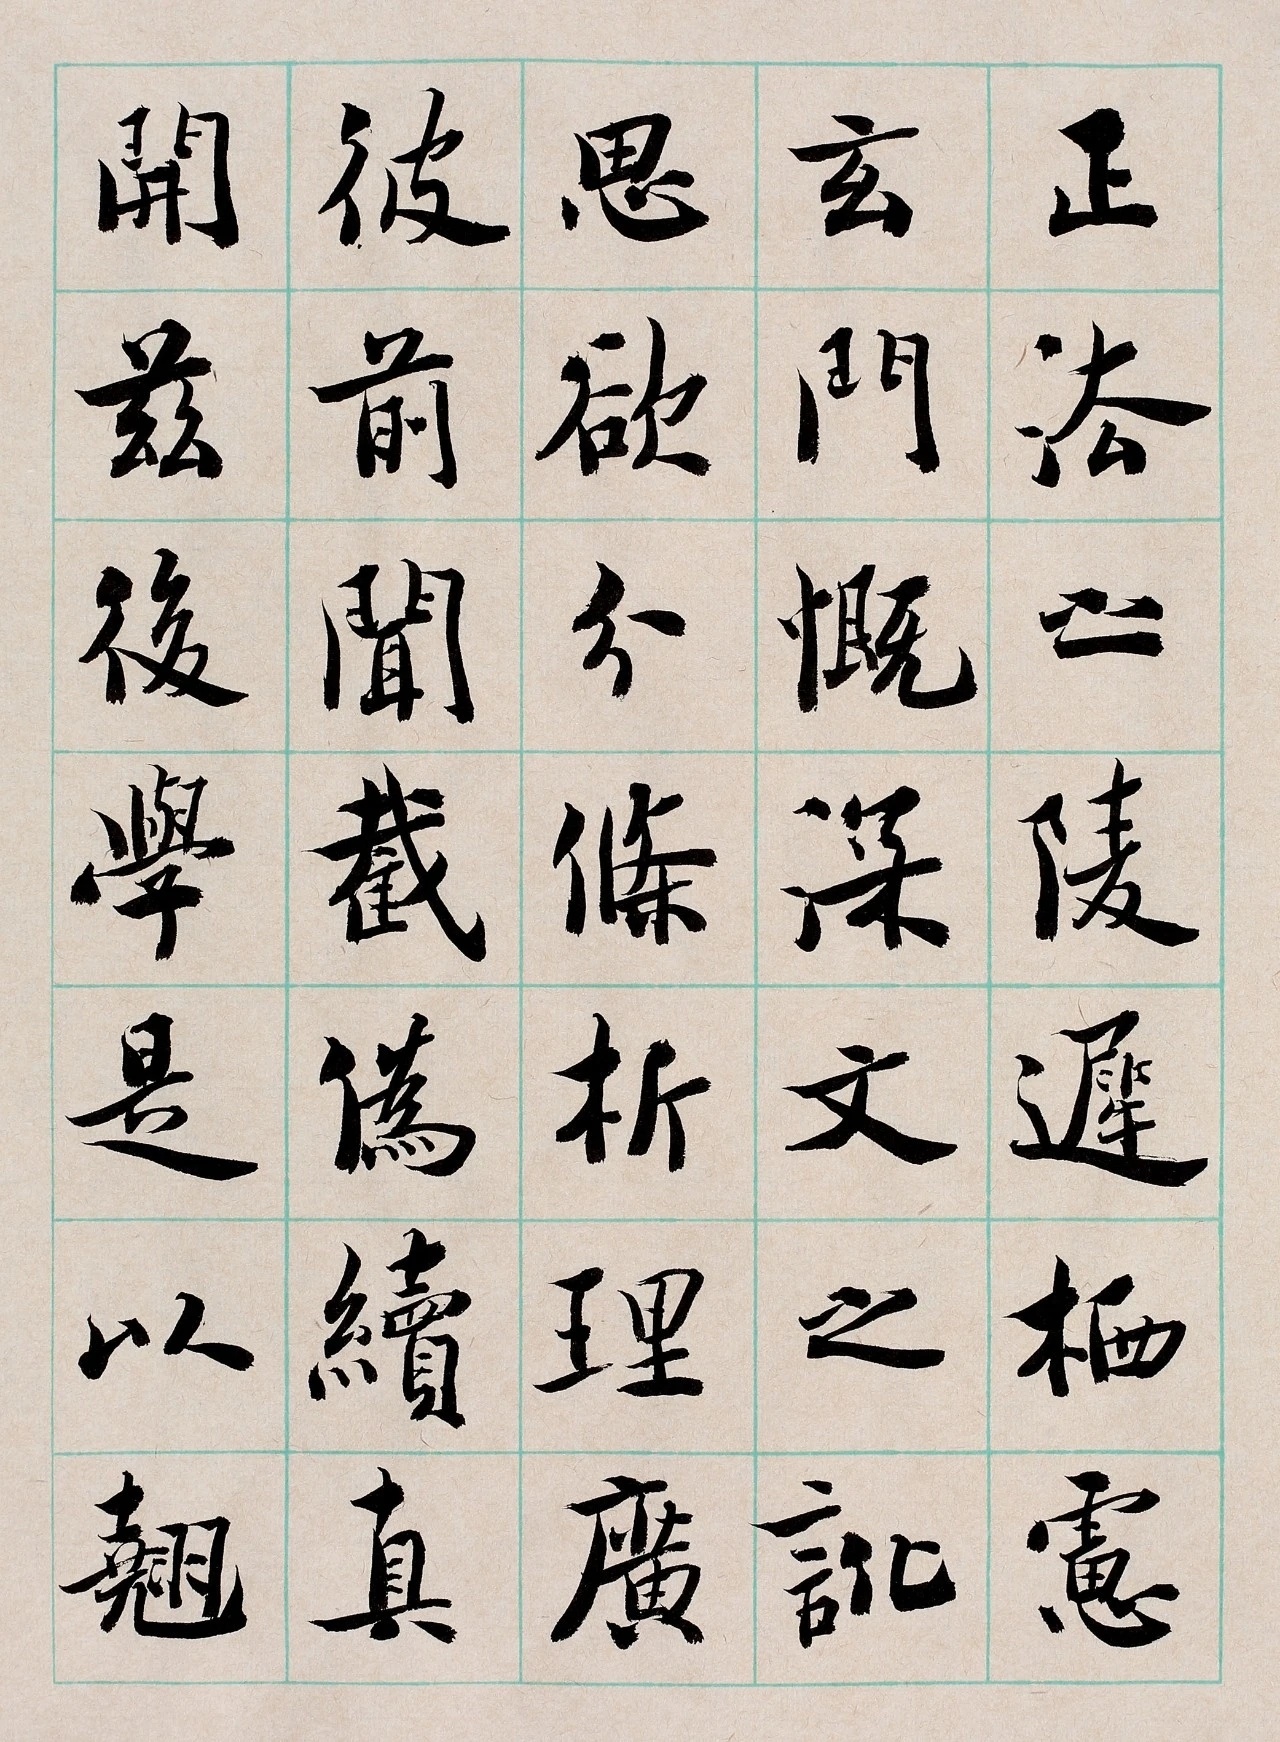 正法之陵遲栖慮
玄門慨深文之訛
思欲分條析理廣
彼前聞截偽續真
開茲後學是以翹